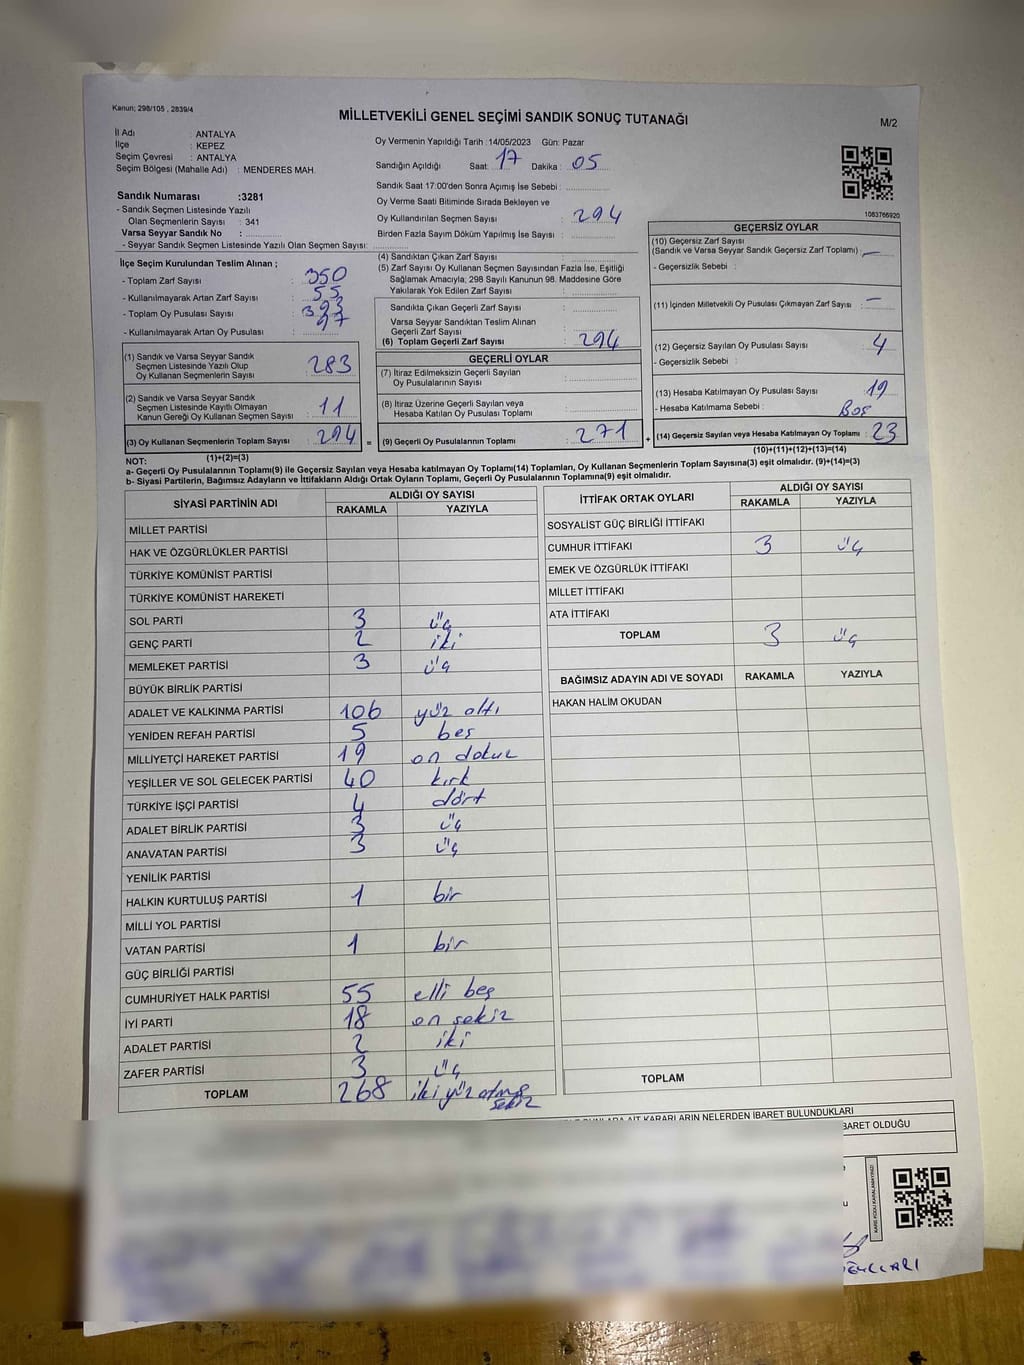 Kanun; 298/105 , 2839/4
MİLLETVEKİLİ GENEL SEÇİMİ SANDIK SONUÇ TUTANAĞI
M/2
İl Adı : ANTALYA
İlçe : KEPEZ
Seçim Çevresi : ANTALYA
Seçim Bölgesi (Mahalle Adı) : MENDERES MAH.
Sandık Numarası :3281
- Sandık Seçmen Listesinde Yazılı
Olan Seçmenlerin Sayısı : 341
Varsa Seyyar Sandık No :
- Seyyar Sandık Seçmen Listesinde Yazılı Olan Seçmen Sayısı:
Oy Vermenin Yapıldığı Tarih :14/05/2023 Gün: Pazar
Sandığın Açıldığı Saat: 17 Dakika : 05
Sandık Saat 17:00'den Sonra Açımış İse Sebebi :
Oy Verme Saati Bitiminde Sırada Bekleyen ve
Oy Kullandırılan Seçmen Sayısı : 294
Birden Fazla Sayım Döküm Yapılmış İse Sayısı :
1083766920
İlçe Seçim Kurulundan Teslim Alınan ;
- Toplam Zarf Sayısı : 350
- Kullanılmayarak Artan Zarf Sayısı : 55
- Toplam Oy Pusulası Sayısı :
- Kullanılmayarak Artan Oy Pusulası :
(1) Sandık ve Varsa Seyyar Sandık
Seçmen Listesinde Yazılı Olup
Oy Kullanan Seçmenlerin Sayısı : 283
(2) Sandık ve Varsa Seyyar Sandık
Seçmen Listesinde Kayıtlı Olmayan
Kanun Gereği Oy Kullanan Seçmen Sayısı : 11
(3) Oy Kullanan Seçmenlerin Toplam Sayısı : 294 =
(1)+(2)=(3)
(4) Sandıktan Çıkan Zarf Sayısı :
(5) Zarf Sayısı Oy Kullanan Seçmen Sayısından Fazla İse, Eşitliği
Sağlamak Amacıyla; 298 Sayılı Kanunun 98. Maddesine Göre
Yakılarak Yok Edilen Zarf Sayısı :
Sandıkta Çıkan Geçerli Zarf Sayısı :
Varsa Seyyar Sandıktan Teslim Alınan
Geçerli Zarf Sayısı :
(6) Toplam Geçerli Zarf Sayısı : 294
GEÇERLİ OYLAR
(7) İtiraz Edilmeksizin Geçerli Sayılan
Oy Pusulalarının Sayısı :
(8) İtiraz Üzerine Geçerli Sayılan veya
Hesaba Katılan Oy Pusulası Toplamı :
(9) Geçerli Oy Pusulalarının Toplamı : 271 +
GEÇERSİZ OYLAR
(10) Geçersiz Zarf Sayısı
(Sandık ve Varsa Seyyar Sandık Geçersiz Zarf Toplamı) : —
- Geçersizlik Sebebi :
(11) İçinden Milletvekili Oy Pusulası Çıkmayan Zarf Sayısı : —
(12) Geçersiz Sayılan Oy Pusulası Sayısı : 4
- Geçersizlik Sebebi :
(13) Hesaba Katılmayan Oy Pusulası Sayısı : 19
- Hesaba Katılmama Sebebi : Boş
(14) Geçersiz Sayılan veya Hesaba Katılmayan Oy Toplamı : 23
(10)+(11)+(12)+(13)=(14)
NOT:
a- Geçerli Oy Pusulalarının Toplamı(9) ile Geçersiz Sayılan veya Hesaba katılmayan Oy Toplamı(14) Toplamları, Oy Kullanan Seçmenlerin Toplam Sayısına(3) eşit olmalıdır. (9)+(14)=(3)
b- Siyasi Partilerin, Bağımsız Adayların ve İttifakların Aldığı Ortak Oyların Toplamı, Geçerli Oy Pusulalarının Toplamına(9) eşit olmalıdır.
SİYASİ PARTİNİN ADI ALDIĞI OY SAYISI
RAKAMLA YAZIYLA
MİLLET PARTİSİ
HAK VE ÖZGÜRLÜKLER PARTİSİ
TÜRKİYE KOMÜNİST PARTİSİ
TÜRKİYE KOMÜNİST HAREKETİ
SOL PARTİ 3 üç
GENÇ PARTİ 2 iki
MEMLEKET PARTİSİ 3 üç
BÜYÜK BİRLİK PARTİSİ
ADALET VE KALKINMA PARTİSİ 106 yüz altı
YENİDEN REFAH PARTİSİ 5 beş
MİLLİYETÇİ HAREKET PARTİSİ 19 on dokuz
YEŞİLLER VE SOL GELECEK PARTİSİ 40 kırk
TÜRKİYE İŞÇİ PARTİSİ 4 dört
ADALET BİRLİK PARTİSİ 3 üç
ANAVATAN PARTİSİ 3 üç
YENİLİK PARTİSİ
HALKIN KURTULUŞ PARTİSİ 1 bir
MİLLİ YOL PARTİSİ
VATAN PARTİSİ 1 bir
GÜÇ BİRLİĞİ PARTİSİ
CUMHURİYET HALK PARTİSİ 55 elli beş
İYİ PARTİ 18 on sekiz
ADALET PARTİSİ 2 iki
ZAFER PARTİSİ 3 üç
TOPLAM 268 iki yüz atmış
sekiz
İTTİFAK ORTAK OYLARI ALDIĞI OY SAYISI
RAKAMLA YAZIYLA
SOSYALİST GÜÇ BİRLİĞİ İTTİFAKI
CUMHUR İTTİFAKI 3 üç
EMEK VE ÖZGÜRLÜK İTTİFAKI
MİLLET İTTİFAKI
ATA İTTİFAKI
TOPLAM 3 üç
BAĞIMSIZ ADAYIN ADI VE SOYADI RAKAMLA YAZIYLA
HAKAN HALİM OKUDAN
TOPLAM
KARARLARIN NELERDEN İBARET BULUNDUKLARI
BARET OLDUĞU